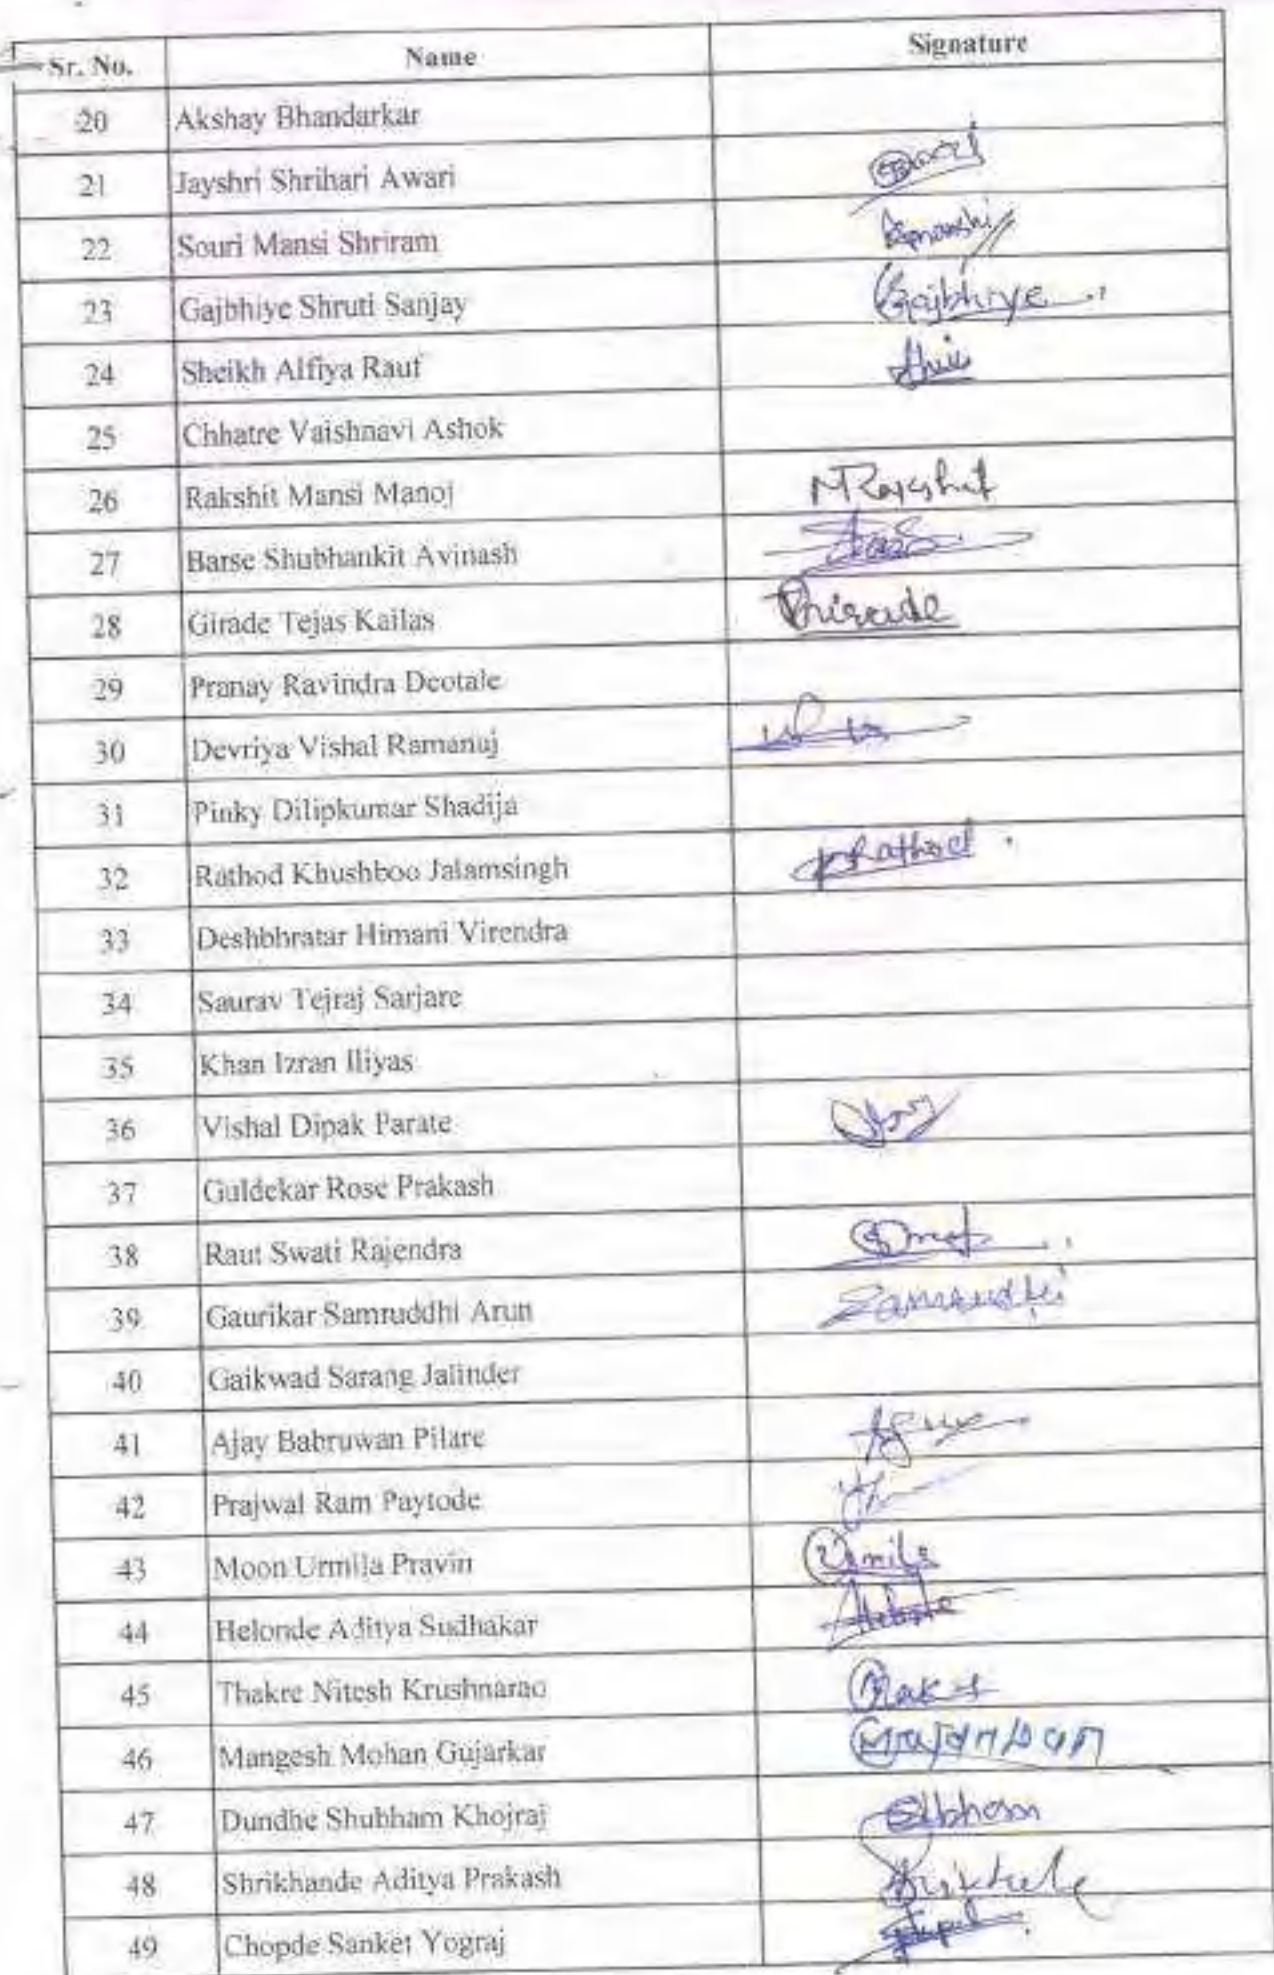 Sr. No. Name Signature
20 Akshay Bhandarkar
21 Jayshri Shrihari Awari
22 Souri Mansi Shriram
23 Gajbhiye Shruti Sanjay Gajbhiye
24 Sheikh Alfiya Rauf
25 Chhatre Vaishnavi Ashok
26 Rakshit Mansi Manoj MRakshit
27 Barse Shubhankit Avinash
28 Girade Tejas Kailas
29 Pranay Ravindra Deotale
30 Devriya Vishal Ramanuj
31 Pinky Dilipkumar Shadija
32 Rathod Khushboo Jalamsingh KRathod
33 Deshbhratar Himani Virendra
34 Saurav Tejraj Sarjare
35 Khan Izran Iliyas
36 Vishal Dipak Parate
37 Guldekar Rose Prakash
38 Raut Swati Rajendra
39 Gaurikar Samruddhi Arun Samruddhi
40 Gaikwad Sarang Jalinder
41 Ajay Babruwan Pilare
42 Prajwal Ram Paytode
43 Moon Urmila Pravin Urmila
44 Helonde Aditya Sudhakar
45 Thakre Nitesh Krushnarao
46 Mangesh Mohan Gujarkar
47 Dundhe Shubham Khojraj
48 Shrikhande Aditya Prakash
49 Chopde Sanket Yograj